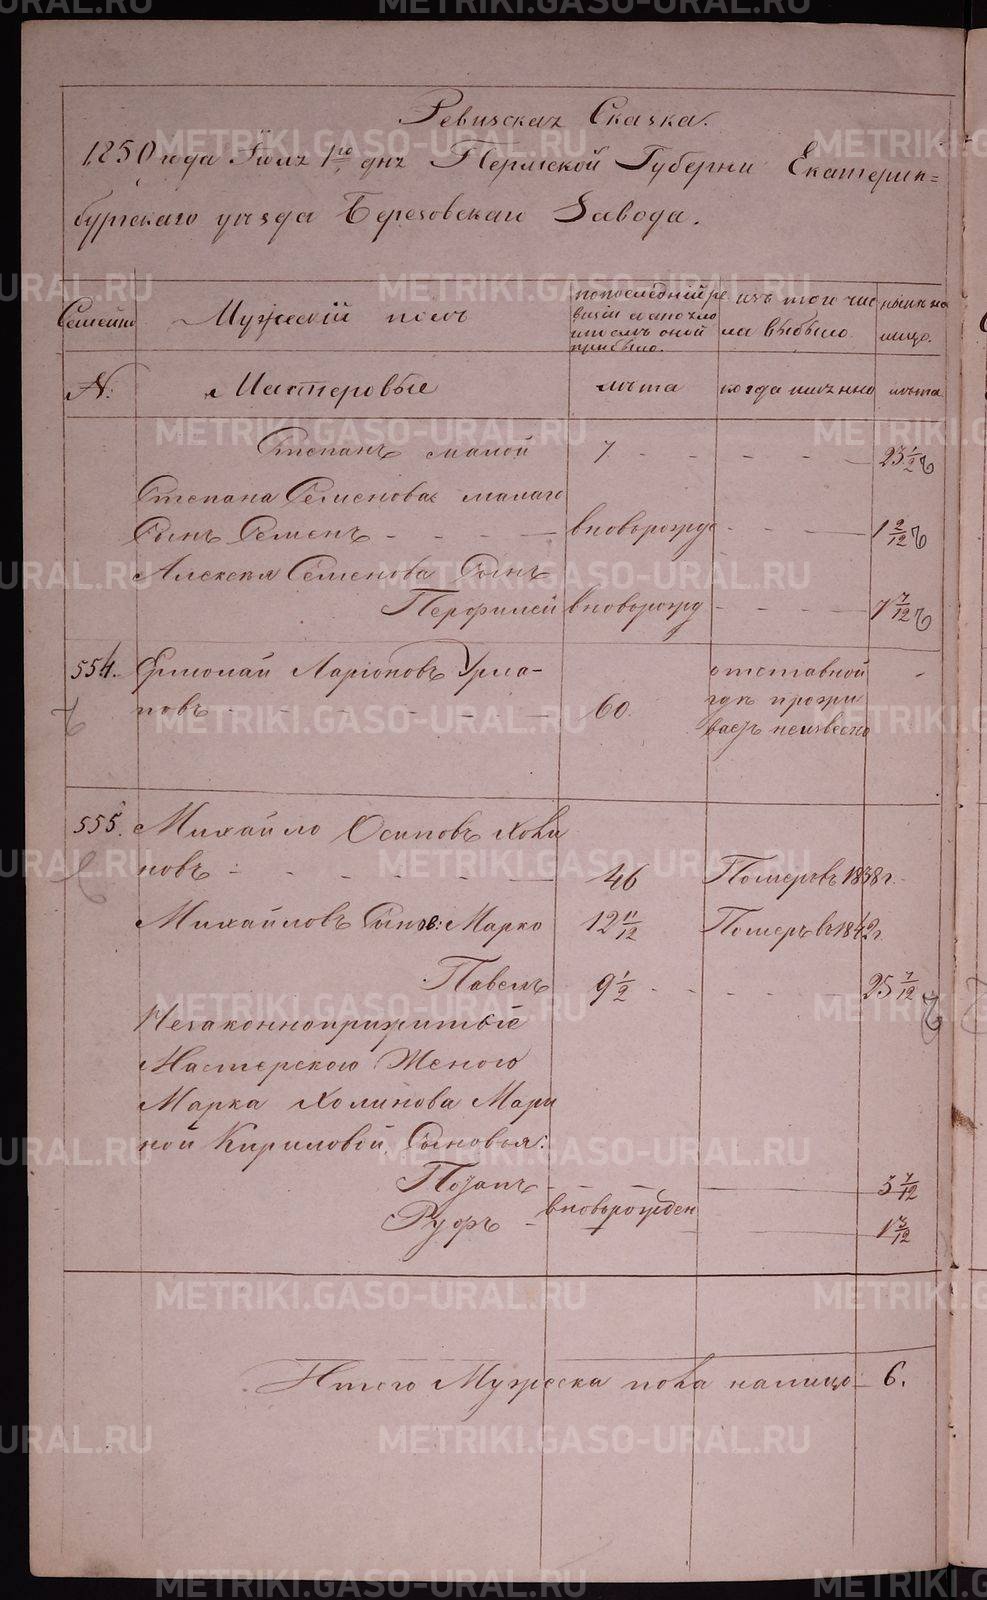 Ревизская Сказка.
1850 года Іюля 1го дня Пермской Губерни Екатерин=
бургскаго уѣзда Березовскаи Завода.
Семейно
Мужескій полъ
попоследнійре
визіи состояло
прибыло.
изъ того чис
ла выбыло
нынѣ на
лицо.
№:
Мастеровые
лѣта
когда имѣнно
лѣта
Степанъ малой 7 - - - - 23 1/2
Степана Семенова малаго
Сынъ Семенъ - - - - вноворожд - - - 1 2/12
Алексея Семенова Сынъ
Перфилей вноворожд - - - 7 7/12
554. Ермолай Ларіоновъ Урма-
новъ - - - - - - 60
отставной
гдѣ прожи
ваетъ неизвесно
-
555. Михайло Осиповъ Холи
новъ - - - - - - 46 Померъ въ 1838 г.
Михайловъ Сынов: Марко 12 11/12 Померъ въ 1842 г.
Павелъ 9 1/2 - - - - 25 7/12
Незаконноприжитые
Мастерскою Женою
Марка Холинова Мари
ной Кириловой Сыновья:
Потапъ - вноворожден 3 7/12
Руфъ - 1 3/12
Итого Мужеска пола налицо 6.
METRIKI.GASO-URAL.RU